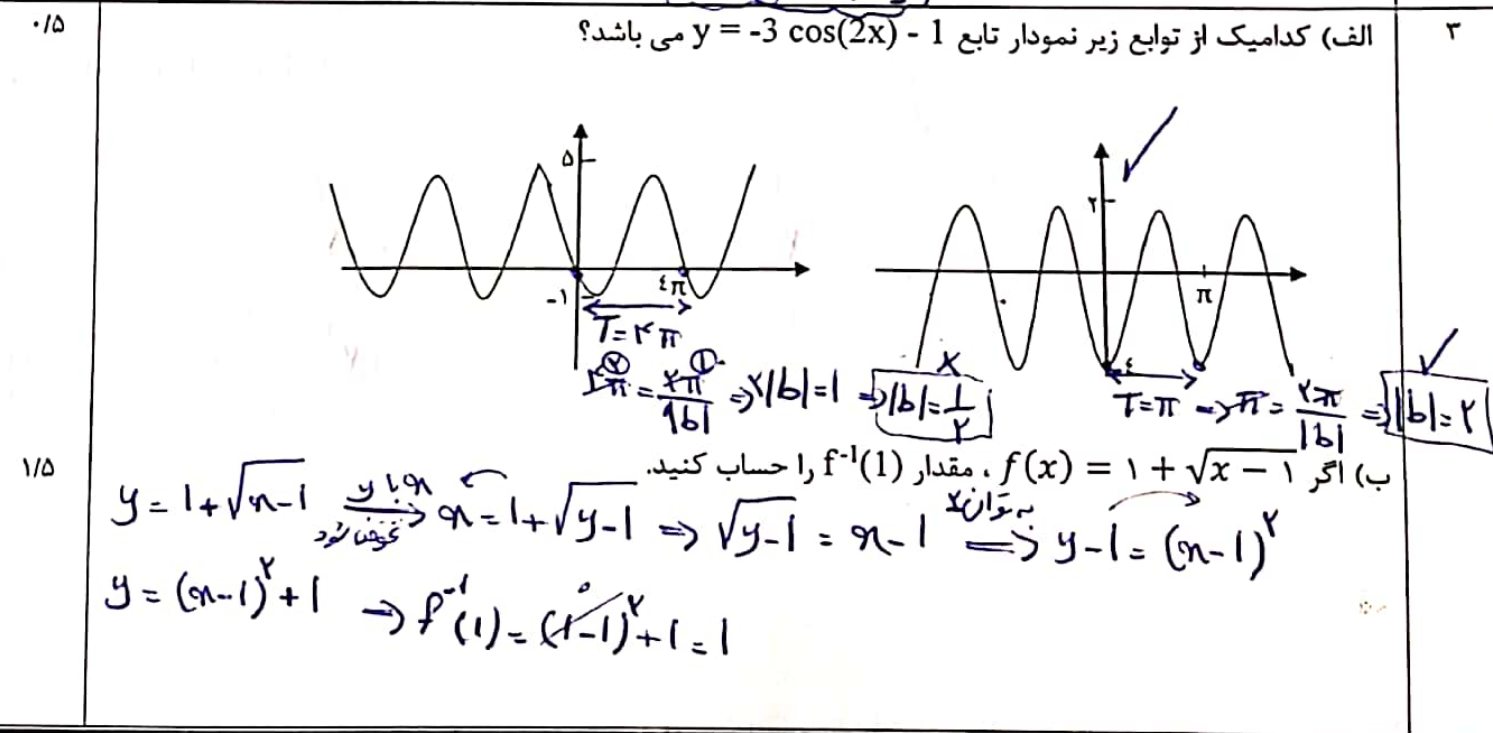 ۳
۰/۵
الف) کدامیک از توابع زیر نمودار تابع y = -3 cos(2x) - 1 می باشد؟
۵
-۱
٤π
T=۴π
۲
-٤
π
✓
۴π = ۲π/|b| ⇒ ۲|b|=1 ⇒ |b|=1/۲ ×
T=π ⇒ π = ۲π/|b| ⇒ |b|=۲ ✓
۱/۵
ب) اگر f(x) = ۱ + √x − ۱ ، مقدار f⁻¹(1) را حساب کنید.
y = 1+√x-1 ⇒ x با y عوض شود x = 1+√y-1 ⇒ √y-1 = x-1 ⇒ به توان ۲ y-1 = (x-1)^۲
y = (x-1)^۲+1 → f⁻¹(1) = (1-1)^۲+1 = 1